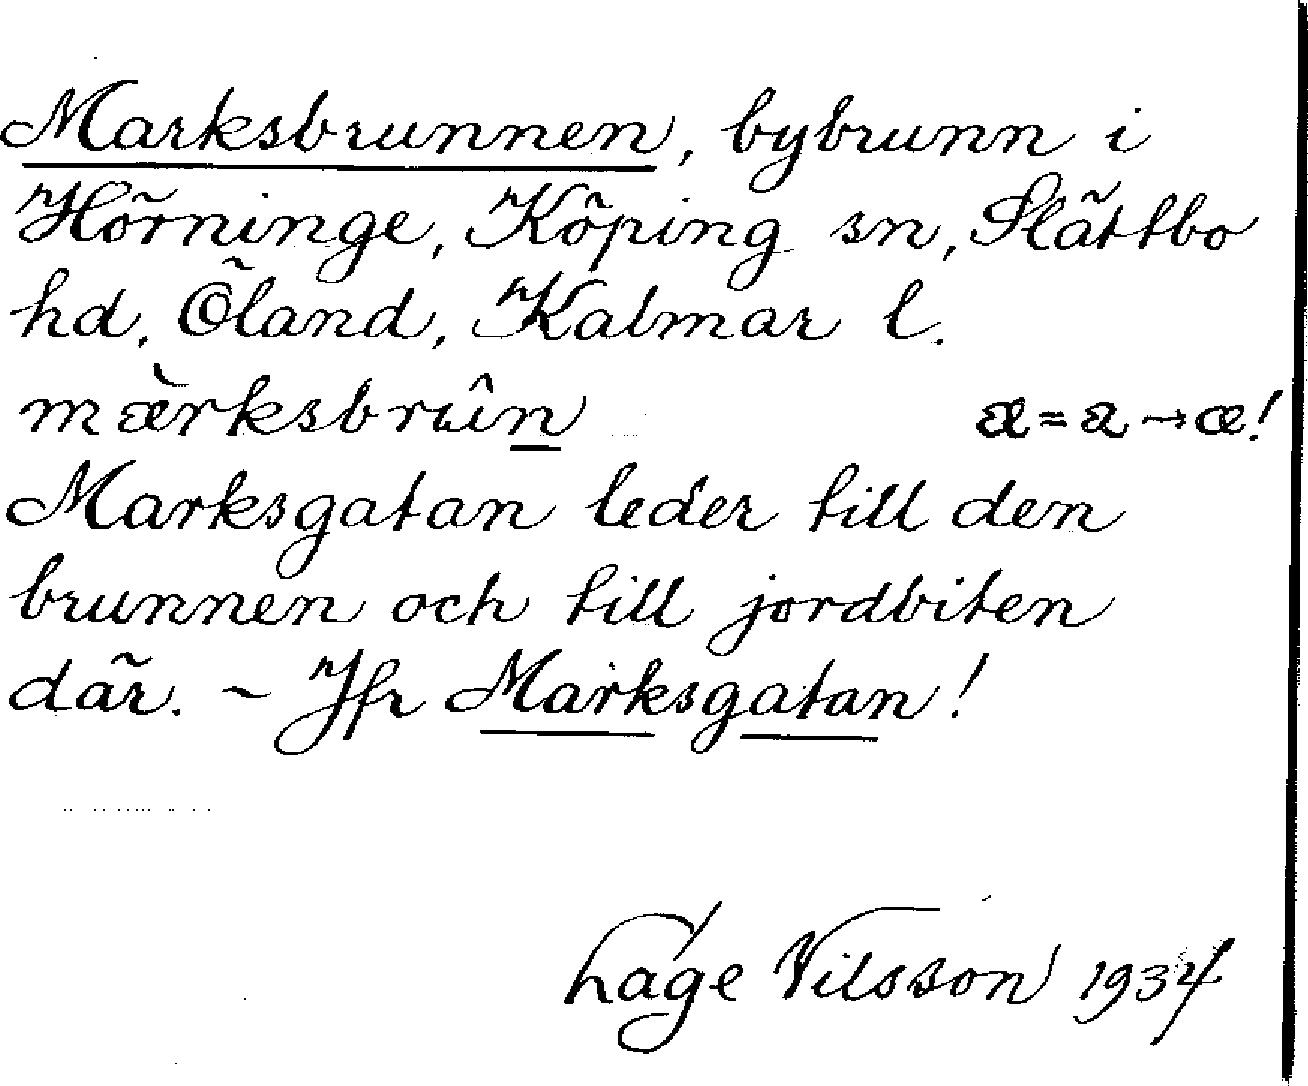 Marksbrunnen, bybrunn i
Hörninge, Köping sn, Slättbo
hd, Öland, Kalmar l.
mæ̀rksbrûn æ = a → æ!
Marksgatan leder till den
brunnen och till jordbiten
där. – Jfr Marksgatan!
Låge Nilsson 1934